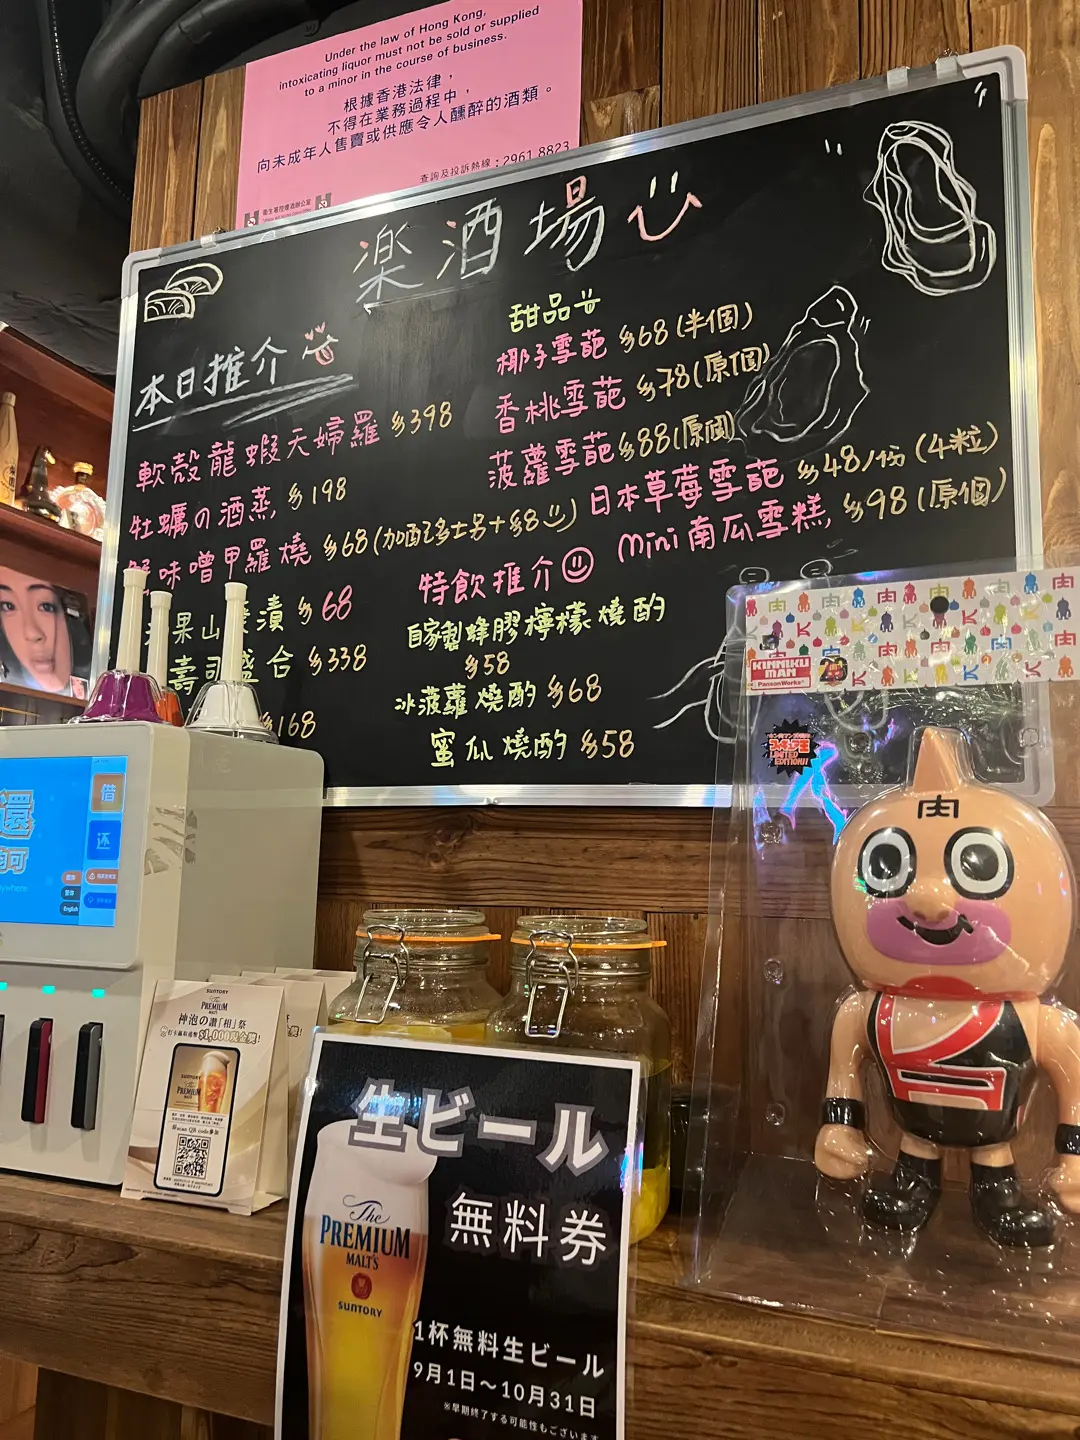 Under the law of Hong Kong,
intoxicating liquor must not be sold or supplied
to a minor in the course of business.
根據香港法律，
不得在業務過程中，
向未成年人售賣或供應令人醺醉的酒類。
查詢及投訴熱線：2961 8823
衞生署控煙酒辦公室
楽酒場
本日推介
軟殼龍蝦天婦羅 $398
牡蠣の酒蒸 $198
蟹味噌甲羅燒 $68 (加配多士另+$8)
果山 漬 $68
壽司盛合 $338
$168
甜品
椰子雪葩 $68 (半個)
香桃雪葩 $78 (原個)
菠蘿雪葩 $88 (原個)
日本草莓雪葩 $48/份 (4粒)
mini南瓜雪糕 $98 (原個)
特飲推介
自家製蜂膠檸檬燒酌
$58
冰菠蘿燒酌 $68
蜜瓜燒酌 $58
KINNIKU
MAN
PansonWorks
LIMITED
EDITION!!
肉
還
可
ywhere
借
还
English
SUNTORY
The
PREMIUM
MALT'S
神泡の讚「相」祭
$1,000現金獎!
生ビール
無料券
The
PREMIUM
MALT'S
SUNTORY
1杯無料生ビール
9月1日～10月31日
※早期終了する可能性もございます